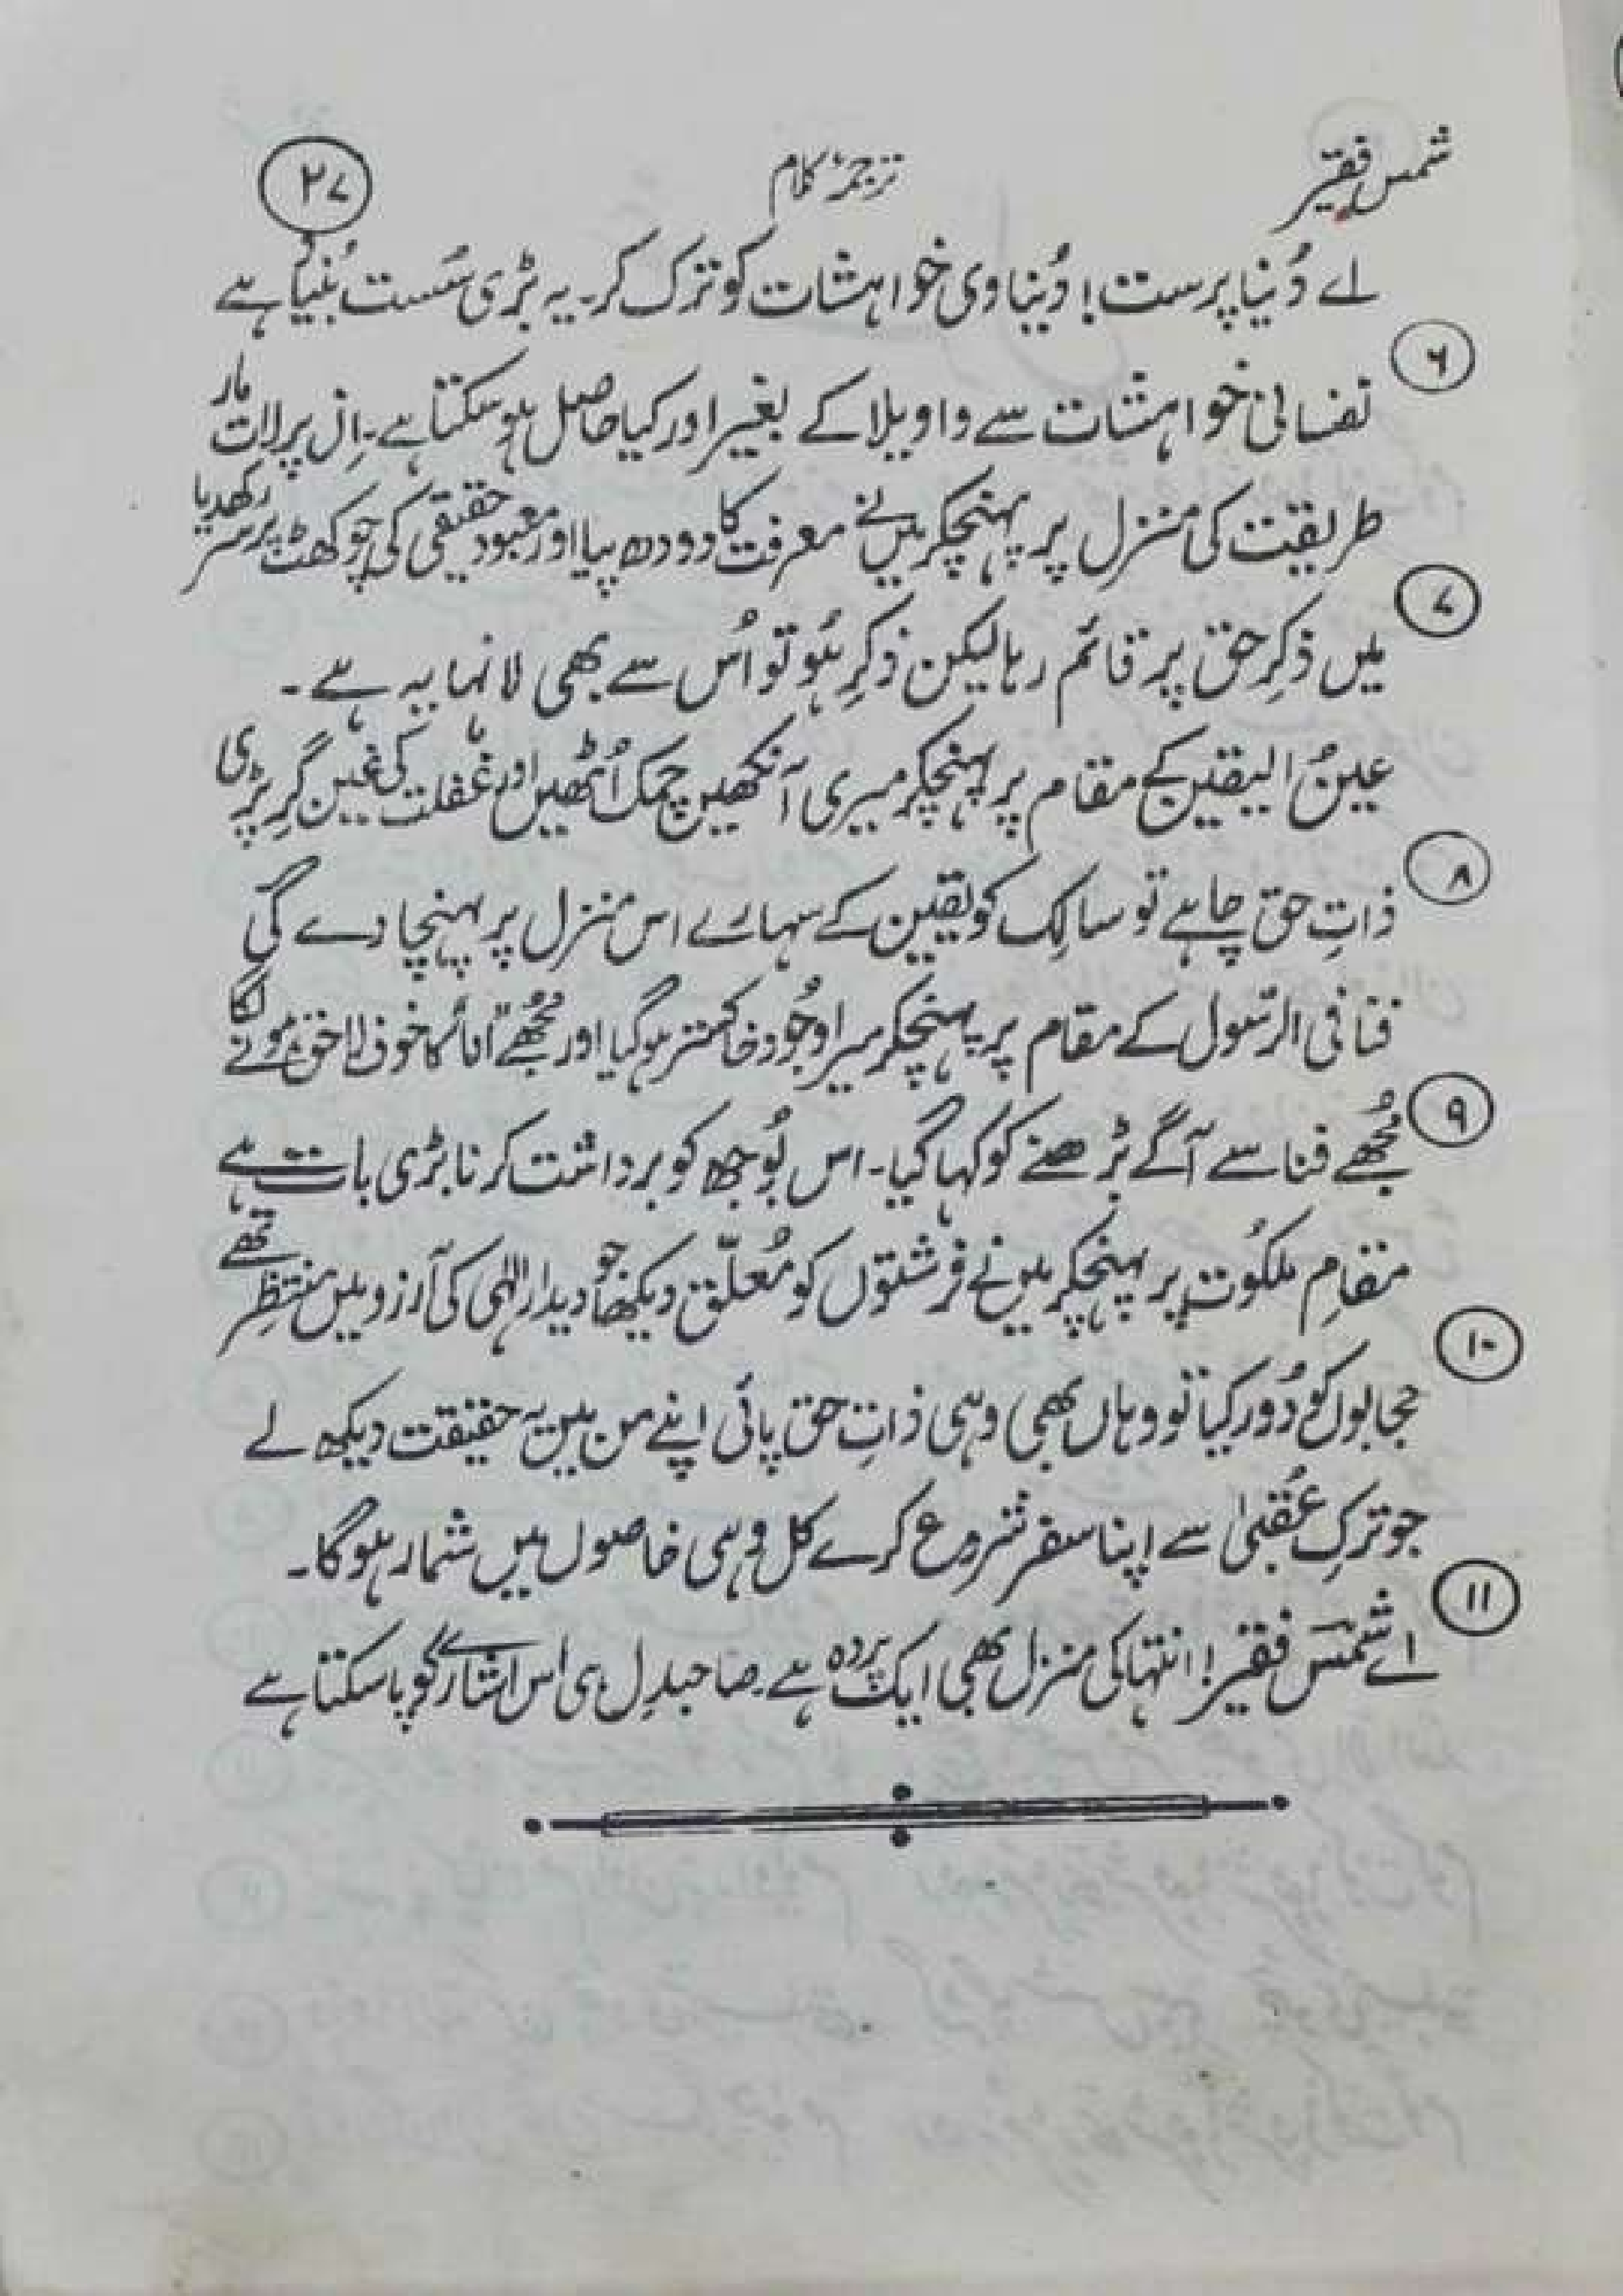 شمس فقیر ترجمۂ کلام ۲۷
اے دُنیا پرست! دُنیاوی خواہشات کو ترک کر۔ یہ بڑی سُست بُنیاد ہے
۶
نفسانی خواہشات سے واویلا کے بغیر اور کیا حاصل ہو سکتا ہے۔ اِن پر لات مار
طریقت کی منزل پر پہنچکر میں نے معرفت کا دودھ پیا اور معبود حقیقی کی چوکھٹ پر سر رکھدیا
۷
میں ذکرِ حق پر قائم رہا لیکن ذکرِ ہُو تو اُس سے بھی لانہایہ ہے۔
عینُ الیقین کے مقام پر پہنچکر میری آنکھیں چمک اُٹھیں اور غفلت کی غین گِر پڑی
۸
ذاتِ حق چاہے تو سالِک کو یقین کے سہارے اس منزل پر پہنچا دے گی
فنا فی الرّسول کے مقام پر پہنچکر میرا وجُود خاکستر ہو گیا اور مُجھے اَنا کا خوف لاحق ہونے لگا
۹
مُجھے فنا سے آگے بڑھنے کو کہا گیا۔ اس بُوجھ کو برداشت کرنا بڑی بات ہے
مقامِ ملکُوت پر پہنچکر میں نے فرشتوں کو مُعلّق دیکھا جو دیدارِ الٰہی کی آرزو میں منتظِر تھے
۱۰
حجابوں کو دُور کیا تو وہاں بھی وہی ذاتِ حق پائی اپنے من میں یہ حقیقت دیکھ لے
جو ترکِ عُقبیٰ سے اپنا سفر شروع کرے کل وہی خاصوں میں شمار ہو گا۔
۱۱
اے شمسؔ فقیر! انتہا کی منزل بھی ایک پردہ ہے۔ صاحبدِل ہی اس اشارے کو پا سکتا ہے